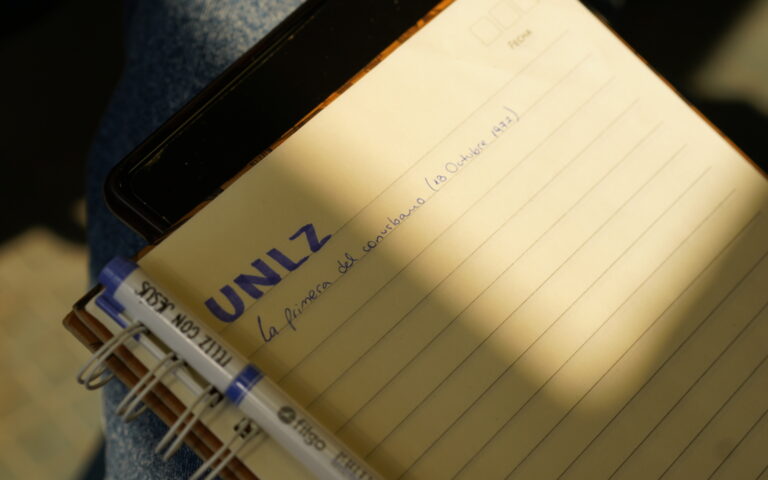 FECHA
UNLZ
La primera del conurbano (13 Octubre 1972)
FELIZ CON JESÚS
filgo